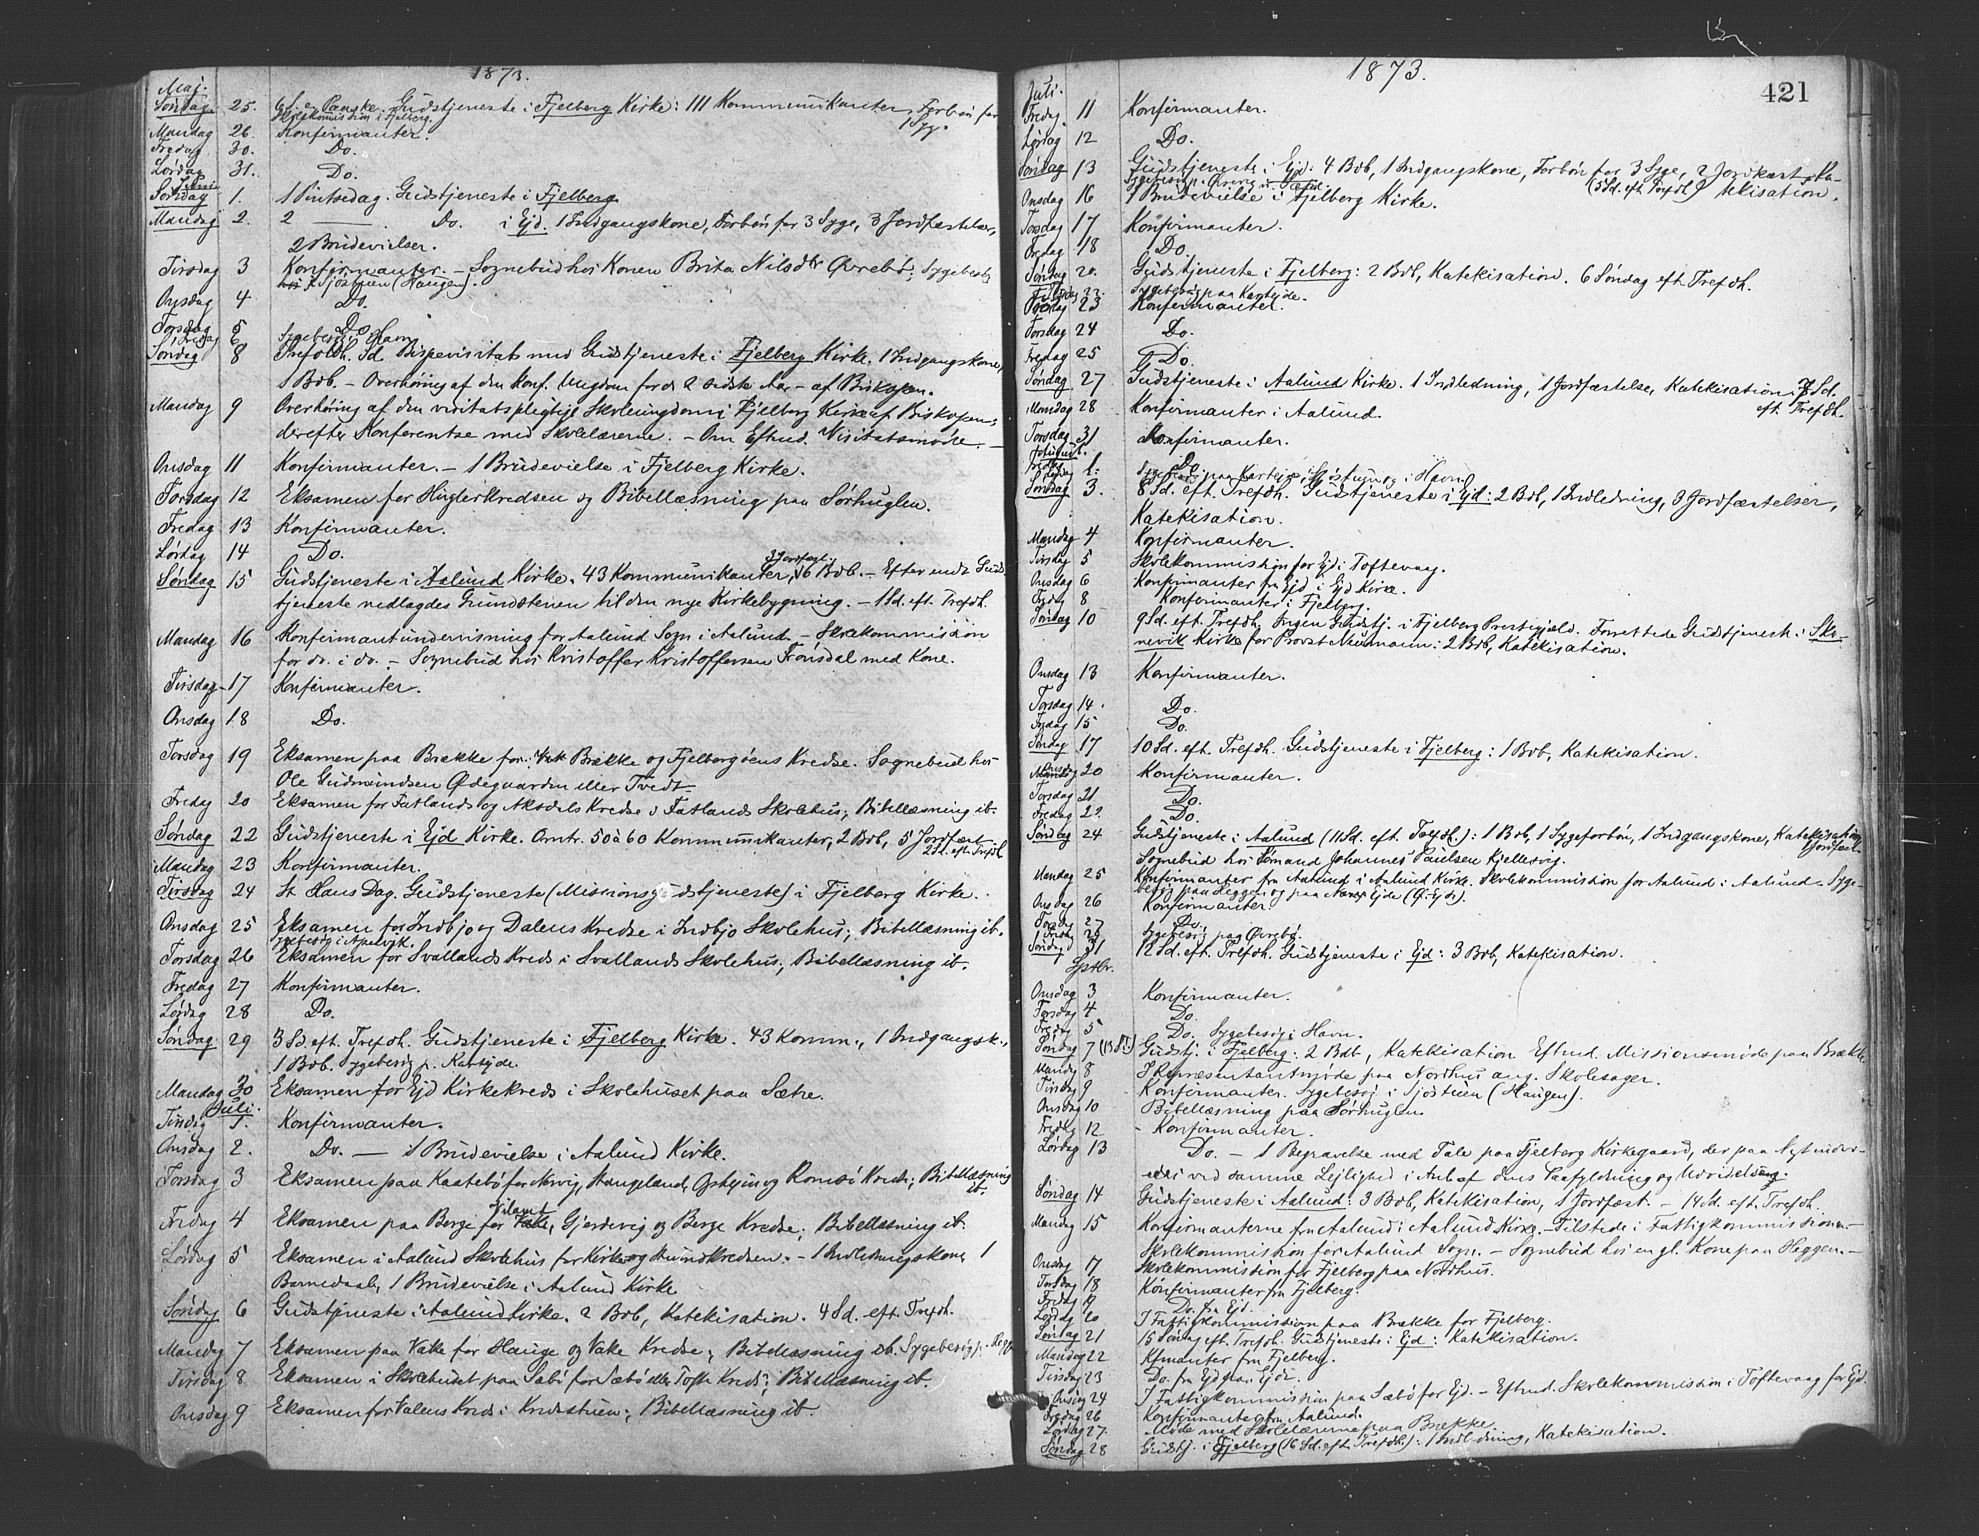 1873.
Maj.
Søndag 25. 6 S. e. Paaske. Gudstjeneste i Fjelberg Kirke: 111 Kommunikanter, Forbøn for
Skolekommission i Fjelberg. 1 Syg.
Mandag 26. Konfirmanter.
Fredag 30. Do.
Lørdag 31. Do.
Juni
Søndag 1. 1 Pintsedag. Gudstjeneste i Fjelberg
Mandag 2. 2 — Do. i Ejd. 1 Indgangskone, Forbøn for 3 Syge, 3 Jordfæstelser,
2 Brudevielser.
Tirsdag 3 Konfirmanter. – Sognebud hos Konen Brita Nilsdtr Øvrebø; Sygebesøg
i Sjøstuen (Haugen).
Onsdag 4 Do.
Torsdag 5 Do.
Fredag 6 Sygebesøg i Havn
Søndag 8 Trefoldh. Sd. Bispevisitats med Gudstjeneste i Fjelberg Kirke. 1 Indgangskone,
1 Bdb. – Overhøring af den konf. Ungdom for de 2 sidste Aar – af Biskopen.
Mandag 9 Overhøring af den visitatspligtige Skoleungdom i Fjelberg Kirke af Biskopen;
derefter Konferentse med Skolelærerne. – Om Eftmd. Visitatsmøde. –
Onsdag 11 Konfirmanter. – 1 Brudevielse i Fjelberg Kirke.
Torsdag 12 Eksamen for Huglerkredsen og Bibellæsning paa Sørhuglen.
Fredag 13 Konfirmanter.
Lørdag 14 Do.
3 Jordfæst.
Søndag 15 Gudstjeneste i Aalund Kirke. 43 Kommunikanter, 6 Bdb. – Efter endt Guds-
tjeneste nedlagdes Grundstenen til den nye Kirkebygning. – 1 Sd. eft. Trefdh.
Mandag 16 Konfirmantundervisning for Aalund Sogn i Aalund – Skolekommission
for do. i do. – Sognebud hos Kristoffer Kristoffersen Fronsdal med Kone.
Tirsdag 17 Konfirmanter.
Onsdag 18 Do.
Torsdag 19 Eksamen paa Brække for Brække og Fjelbergøens Kredse. Sognebud hos
Ole Gudmundsen Ødegaarden eller Tvedt
Fredag 20 Eksamen for Fatlands og Aksdals Kredse i Fatlands Skolehus; Bibellæsning ib.
Søndag 22 Gudstjeneste i Ejd Kirke. Omtr. 50 à 60 Kommunikanter, 2 Bdb, 5 Jordfæst
2 Sd. eft. Trefdh
Mandag 23 Konfirmanter.
Tirsdag 24 St. Hans Dag. Gudstjeneste (Missionsgudstjeneste) i Fjelberg Kirke.
Onsdag 25 Eksamen for Indbjo og Dalens Kredse i Indbjo Skolehus; Bibellæsning ib.
Sygebesøg i Apelvik.
Torsdag 26 Eksamen for Svallands Kreds i Svallands Skolehus; Bibellæsning ib.
Fredag 27 Konfirmanter.
Lørdag 28 Do.
Søndag 29 3 Sd. eft. Trefdh. Gudstjeneste i Fjelberg Kirke. 43 Komm., 1 Indgangsk.,
1 Bdb. Sygebesøg p. Kartejde.
Mandag 30 Eksamen for Ejd Kirkekreds i Skolehuset paa Sætre.
Juli.
Tirsdag 1. Konfirmanter.
Onsdag 2. Do. — 1 Brudevielse i Aalund Kirke.
Torsdag 3 Eksamen paa Kaatebø for Kreds; Bibellæsning
ib.
Fredag 4 Eksamen paa Berge for Gjerdevig og Berge Kredse; Bibellæsning ib.
Lørdag 5 Eksamen i Aalund Skolehus for Kirke og – 1 Indledningskone, 1
Barnedaab, 1 Brudevielse i Aalund Kirke
Søndag 6 Gudstjeneste i Aalund Kirke. 2 Bdb, Katekisation. 4 Sd. eft. Trefdh.
Mandag 7 Eksamen paa Vake for Hauge og Vake Kredse; Bibellæsning ib. Sygebesøg p.
Tirsdag 8 Eksamen i Skolehuset paa Sæbø for Sæbø eller Tofte Kreds; Bibellæsning ib.
Onsdag 9 Eksamen for Valens Kreds i Kredsstuen; Bibellæsning ib.
1873.
421
Juli.
Fredag 11 Konfirmanter.
Lørdag 12 Do.
Søndag 13 Gudstjeneste i Ejd: 4 Bdb, 1 Indgangskone, Forbøn for 3 Syge, 2 Jordkast, Ka-
(5 Sd. eft. Trefdh) tekisation.
Onsdag 16 1 Brudevielse i Fjelberg Kirke.
Torsdag 17 Konfirmanter.
Fredag 18 Do.
Søndag 20. Gudstjeneste i Fjelberg: 2 Bdb, Katekisation. 6 Søndag eft. Trefdh.
Tirsdag 22. Sygebesøg paa Kartejde.
Onsdag 23 Konfirmanter.
Torsdag 24 Do.
Fredag 25 Do.
Søndag 27 Gudstjeneste i Aalund Kirke. 1 Indledning, 1 Jordfæstelse, Katekisation. 7 Sd.
eft. Trefdh.
Mandag 28 Konfirmanter i Aalund.
Torsdag 31 Konfirmanter.
August.
Fredag 1. Do
Sygebesøg paa Kartejde i Sjøstuen og i Havn
Søndag 3. 8 Sd. eft. Trefdh. Gudstjeneste i Ejd: 2 Bdb, 1 Indledning, 3 Jordfæstelser,
Katekisation.
Mandag 4 Konfirmanter.
Tirsdag 5 Skolekommission for Ejd i Toftevaag.
Onsdag 6 Konfirmanter fra Ejd i Ejd Kirke.
Fredag 8 Konfirmanter i Fjelberg.
Søndag 10 9 Sd. eft. Trefdh. Ingen Gudstj. i Fjelberg Prestegjeld. Forrettede Gudstjeneste i Ske-
nevik Kirke for Provst Neumann: 2 Bdb, Katekisation.
Onsdag 13 Konfirmanter.
Torsdag 14. Do.
Fredag 15 Do.
Søndag 17 10 Sd. eft. Trefdh. Gudstjeneste i Fjelberg: 1 Bdb, Katekisation.
Onsdag 20 Konfirmanter.
Torsdag 21. Do.
Fredag 22. Do.
Søndag 24 Gudstjeneste i Aalund (11 Sd. eft. Trefdh.): 1 Bdb, 1 Sygeforbøn, 1 Indgangskone, Katekisation
1 Jordfæst.
Sognebud hos Sømand Johannes Paulsen Kjellesvig.
Mandag 25 Konfirmanter fra Aalund i Aalund Kirke. Skolekommission for Aalund i Aalund – Syge-
besøg paa Heggen og paa Ejde (Ø. Ejde).
Onsdag 26 Konfirmanter.
Torsdag 27 Do.
Sygebesøg paa Øvrebø.
Søndag 31 12 Sd. eft. Trefdh. Gudstjeneste i Ejd: 3 Bdb, Katekisation.
Sptbr.
Onsdag 3 Konfirmanter.
Torsdag 4 Do.
Fredag 5 Do. Sygebesøg i Havn.
Søndag 7 (13 Sd) Gudstj. i Fjelberg: 2 Bdb, Katekisation Eftmd. Missionsmøde paa Brække
Mandag 8 I Repræsentantmøde paa Nordhus ang. Skolesager.
Tirsdag 9 Konfirmanter. Sygebesøg i Sjøstuen (Haugen).
Onsdag 10 Bibellæsning paa Sørhuglen
Fredag 12 Konfirmanter.
Lørdag 13 Do. – 1 Begravelse med Tale paa Fjelberg Kirkegaard, der paa Nyt indvi-
edes ved samme Lejlighed i Anl. af dens Paafyldning og Udvidelse.
Søndag 14 Gudstjeneste i Aalund: 3 Bdb, Katekisation, 1 Jordfæst. – 14 Sd. eft. Trefdh.
Mandag 15 Konfirmanterne fra Aalund i Aalund Kirke. – Tilstede i Fattigkommissionen –
Skolekommission for Aalund Sogn. – Sognebud hos en gl. Kone paa Heggen. –
Onsdag 17 Skolekommission for Fjelberg paa Nordhus.
Torsdag 18 Konfirmanter fra Fjelberg.
Fredag 19 Do. fra Ejd.
Lørdag 20 I Fattigkommission paa Brække for Fjelberg.
Søndag 21 15 Søndag eft. Trefdh. Gudstjeneste i Ejd: Katekisation.
Mandag 22 Kfmanter fra Fjelberg.
Tirsdag 23 Do. fra Ejd
Onsdag 24 I Fattigkommission paa Sæbø for Ejd. – Eftmd. Skolekommission i Toftevaag for Ejd.
Fredag 26 Konfirmanter fra Aalund.
Lørdag 27. Møde med Skolelærerne paa Brække
Søndag 28 Gudstj. i Fjelberg (16 Sd. eft. Trefdh.): 1 Indledning, Katekisation.